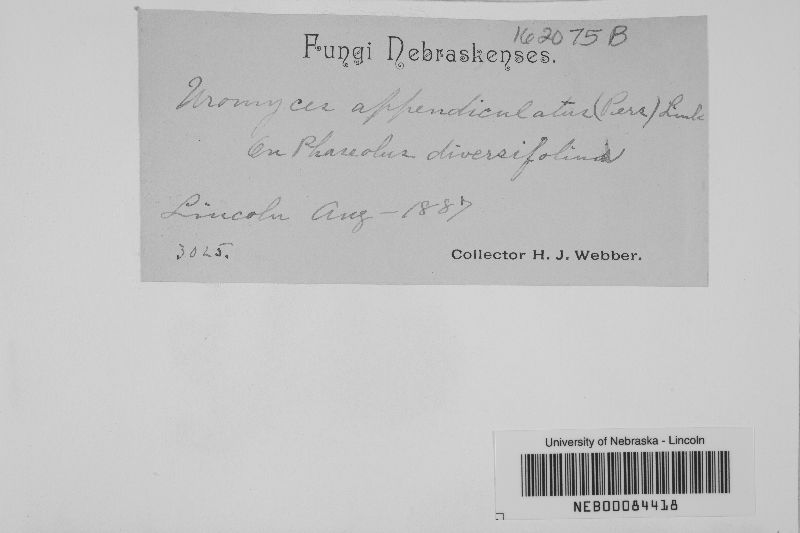 162075 B
Fungi Nebraskenses.
Uromyces appendiculatus (Pers) Link
On Phaseolus diversifolius
Lincoln Aug - 1887
3025.
Collector H. J. Webber.
University of Nebraska - Lincoln
NEB00084418